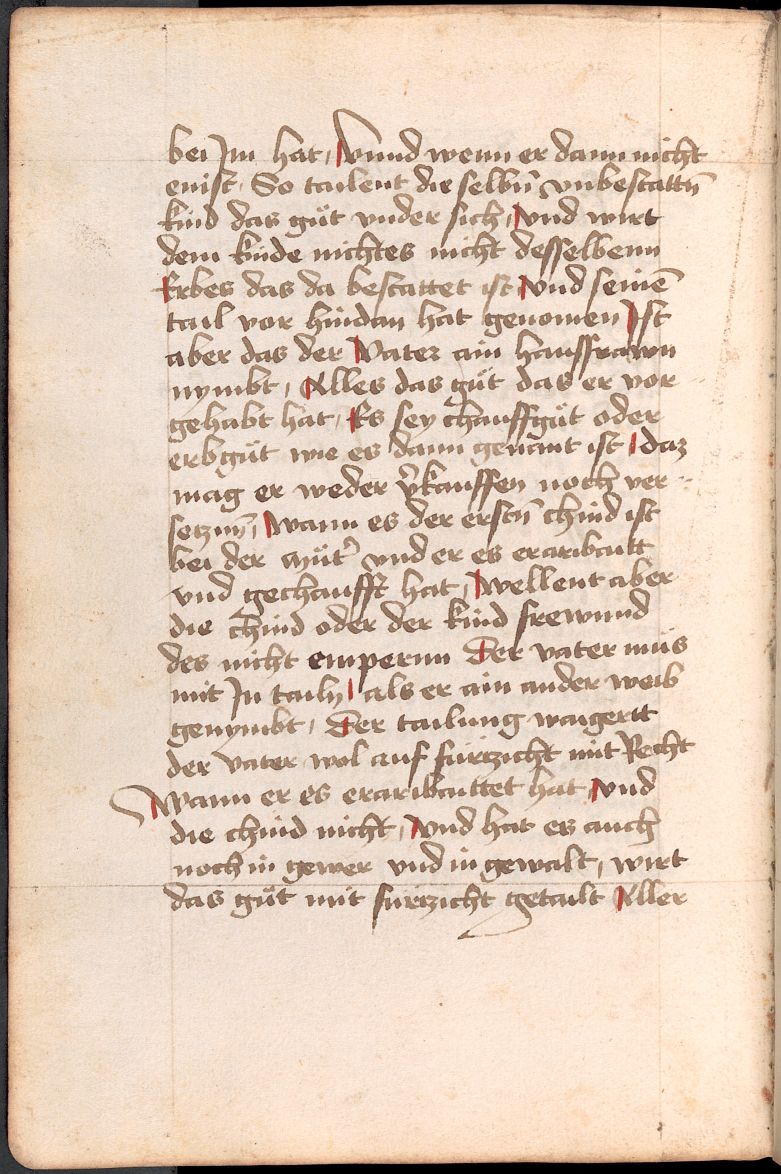 bei Jm hat, Vnnd wenn er dann nicht
enist, So tailent die selbn̄ vnbestattn̄
kind das gůt vnder sich, vnd wirt
dem kinde nichtes nicht desselbenn
Erbes das da bestattet ist vnd seinē
tail vor hindan hat genomen Ist
aber das der Vater ain hausfrawn
nymbt, Alles das gůt das er vor
gehabt hat, Es sey chauffgůt oder
erbgůt wie es dann genāt ist, daz
mag er weder v̄kauffen noch ver
setznn̄, wann es der erstn̄ chind ist
bei der můt̄ vnd er es eraribaitt
vnd gechaufft hat, wellent aber
die chind oder der kind frewnnd
des nicht empernn Der vater můs
mit Jn tailn, als er ain ander weib
genymbt, Der tailung waigertt
der vater wol auf fürzicht mit Recht
Wann er es eraribaittet hat, vnd
die chind nicht, vnd hat es auch
noch in gewer vnd in gewalt, wirt
das gůt mit fürzicht getailt Aller